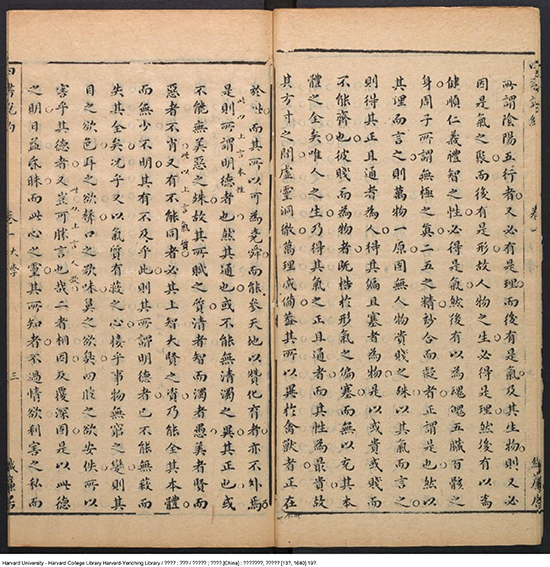 所謂陰陽五行者又必有是理而後有是氣及其生物則又必
因是氣之聚而後有是形故人物之生必得是理然後有以為
健順仁義禮智之性必得是氣然後有以為魂魄五臟百骸之
身周子所謂無極之真二五之精妙合而凝者正謂是也然以
其理而言之則萬物一原固無人物貴賤之殊以其氣而言之
則得其正且通者為人得其偏且塞者為物是以或貴或賤而
不能齊也彼賤而為物者既梏於形氣之偏塞而無以充其本
體之全矣唯人之生乃得其氣之正且通者而其性為最貴故
其方寸之間虛靈洞徹萬理咸備蓋其所以異於禽獸者正在
於此而其所以可為堯舜而能參天地以贊化育者亦不外焉
此以上言本性
是則所謂明德者也然其通也或不能無清濁之異其正也或
不能無美惡之殊故其所賦之質清者智而濁者愚美者賢而
此以上言氣質
惡者不肖又有不能同者必其上智大賢之資乃能全其本體
而無少不明其有不及乎此則其所謂明德者已不能無蔽而
失其全矣況乎又以氣質有蔽之心接乎事物無窮之變則其
目之欲色耳之欲聲口之欲味鼻之欲臭四肢之欲安佚所以
此以上言人欲
害乎其德者又豈可勝言也哉二者相因反覆深固是以此德
之明日益昏昧而此心之靈其所知者不過情欲利害之私而
四書說約 卷一 大學 三 織簾居
Harvard University - Harvard College Library Harvard-Yenching Library / ???? : ??? / ????? ; ???? [China] : ???????, ????? [13?, 1640] 19?